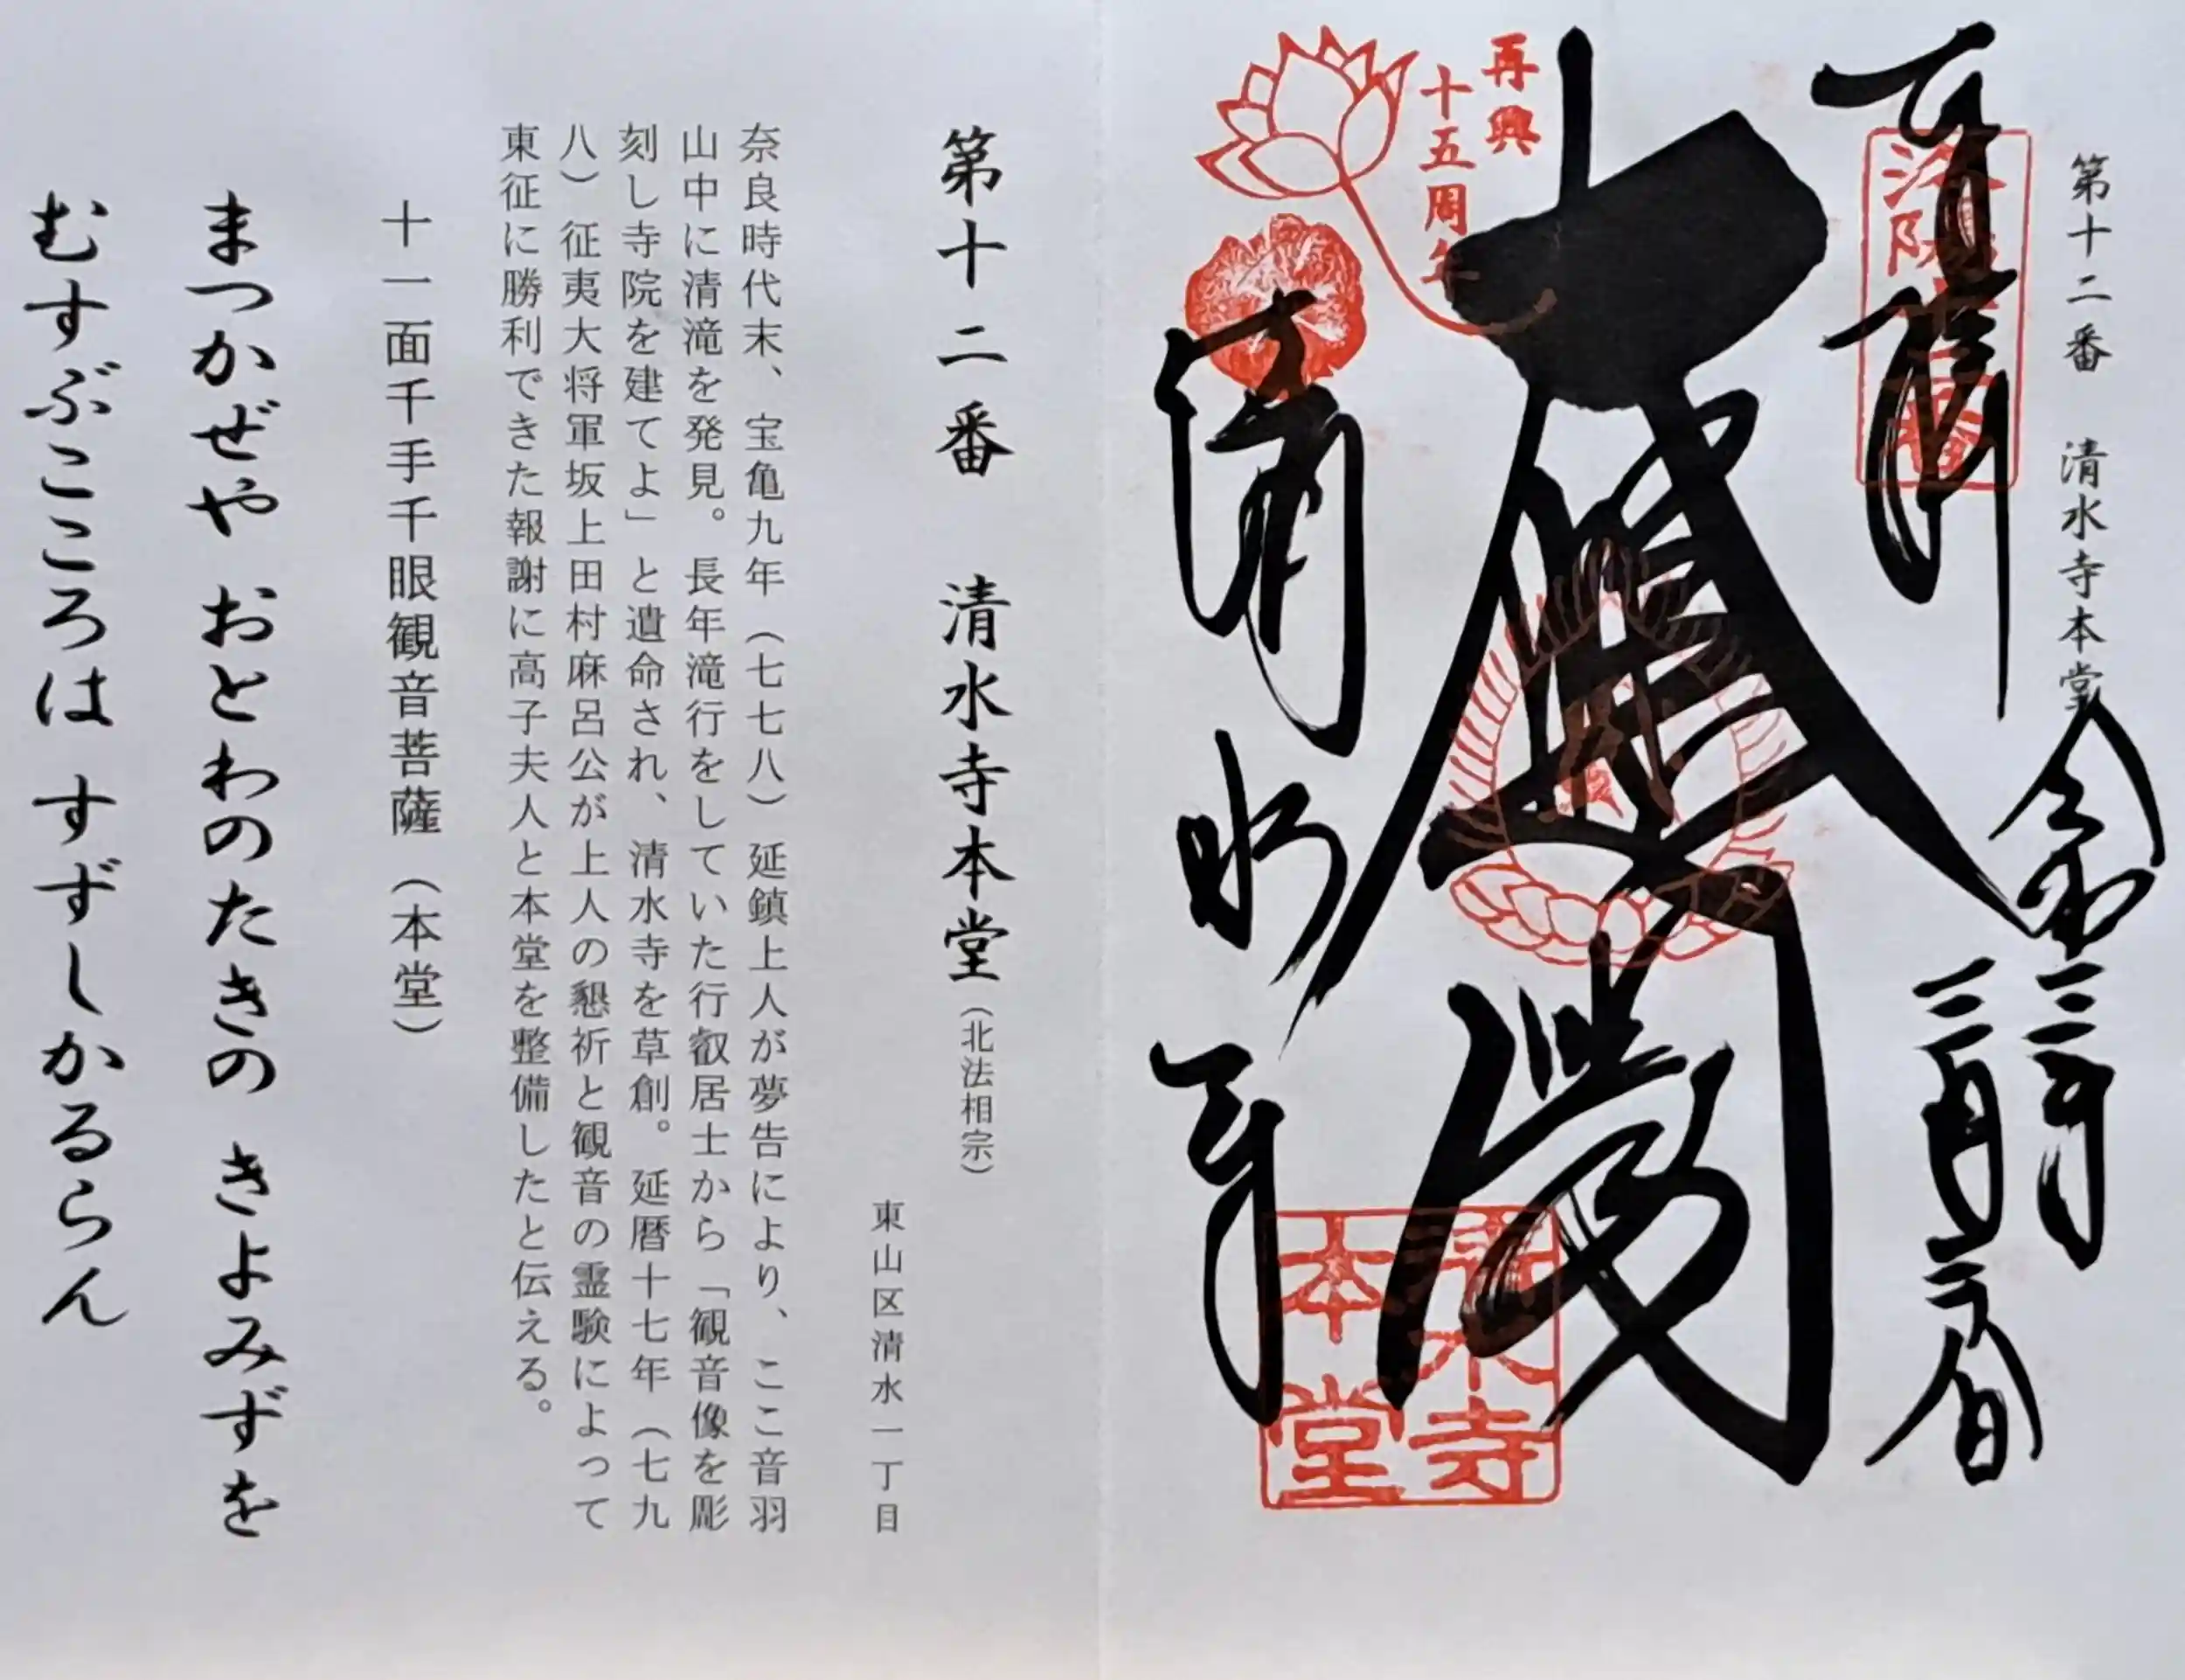 第十二番　清水寺本堂
奉拝
令和二年
三月
再興
十五周年
大悲閣
清水寺
清水寺
本堂
第十二番　清水寺本堂（北法相宗）
東山区清水一丁目
奈良時代末、宝亀九年（七七八）延鎮上人が夢告により、ここ音羽
山中に清滝を発見。長年滝行をしていた行叡居士から「観音像を彫
刻し寺院を建てよ」と遺命され、清水寺を草創。延暦十七年（七九
八）征夷大将軍坂上田村麻呂公が上人の懇祈と観音の霊験によって
東征に勝利できた報謝に高子夫人と本堂を整備したと伝える。
十一面千手千眼観音菩薩（本堂）
まつかぜや おとわのたきの きよみずを
むすぶこころは すずしかるらん